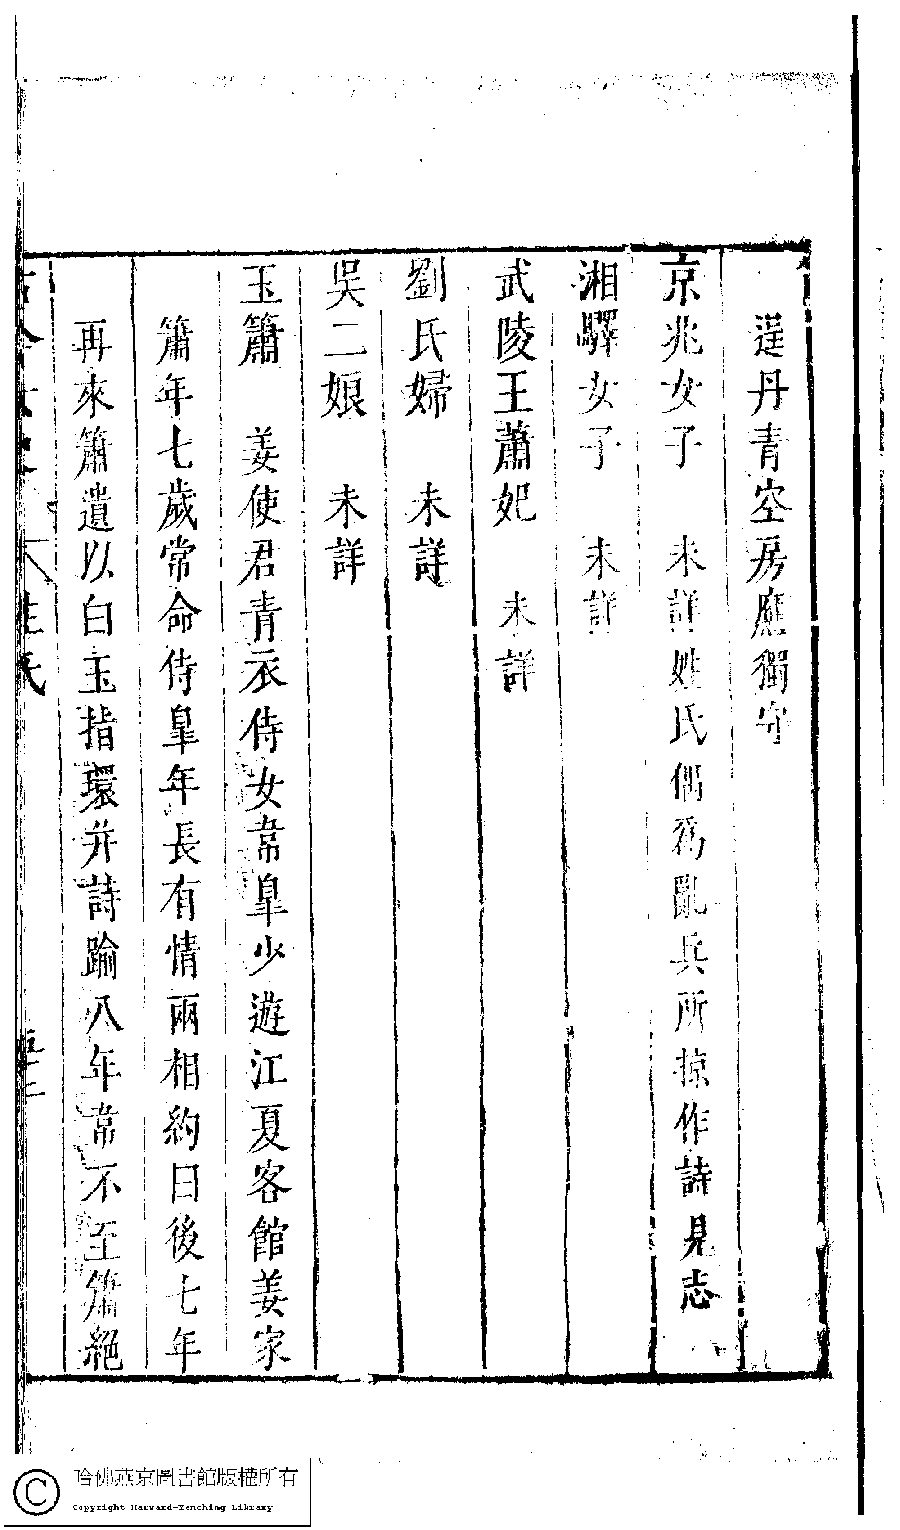 逞丹青空房應獨守
京兆女子　未詳姓氏偶為亂兵所掠作詩見志
湘驛女子　未詳
武陵王蕭妃　未詳
劉氏婦　未詳
吳二娘　未詳
玉簫　姜使君青衣侍女韋皐少遊江夏客館姜家
簫年七歲常命侍皐年長有情兩相約曰後七年
再來簫遺以白玉指環并詩踰八年韋不至簫絕
姓氏
哈佛燕京圖書館版權所有
Copyright Harvard-Yenching Library